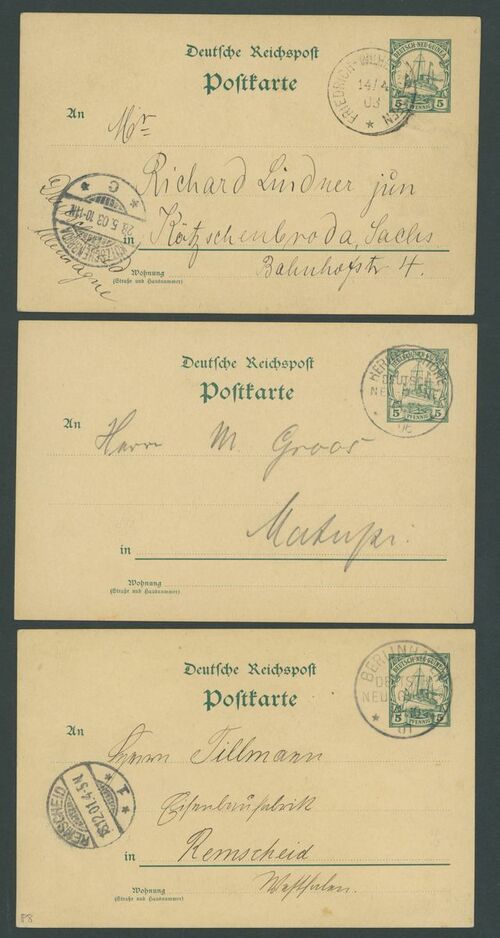 Deutsche Reichspost
Postkarte
DEUTSCH-NEU-GUINEA
5 PFENNIG 5
FRIEDRICH-WILHELMSHAFEN
14/4
03
An
Mr
Richard Lindner jun
in Kötzschenbroda, Sachs
Bahnhofstr 4.
Allemagne
KÖTZSCHENBRODA
28.5.03.10-11N.
* C *
Wohnung
(Straße und Hausnummer)
Deutsche Reichspost
Postkarte
DEUTSCH-NEU-GUINEA
5 PFENNIG 5
HERBERTSHÖHE
DEUTSCH
NEU-GUINEA
06
An
Herrn M. Groos
Matupi.
in
Wohnung
(Straße und Hausnummer)
Deutsche Reichspost
Postkarte
DEUTSCH-NEU-GUINEA
5 PFENNIG 5
BERLINHAFEN
DEUTSCH
NEU-GUINEA
01
An
Herrn Tillmann
Eisenbaufabrik
in Remscheid
Westfalen.
REMSCHEID
18.12.01.4-5N.
* 1 *
Wohnung
(Straße und Hausnummer)
P8